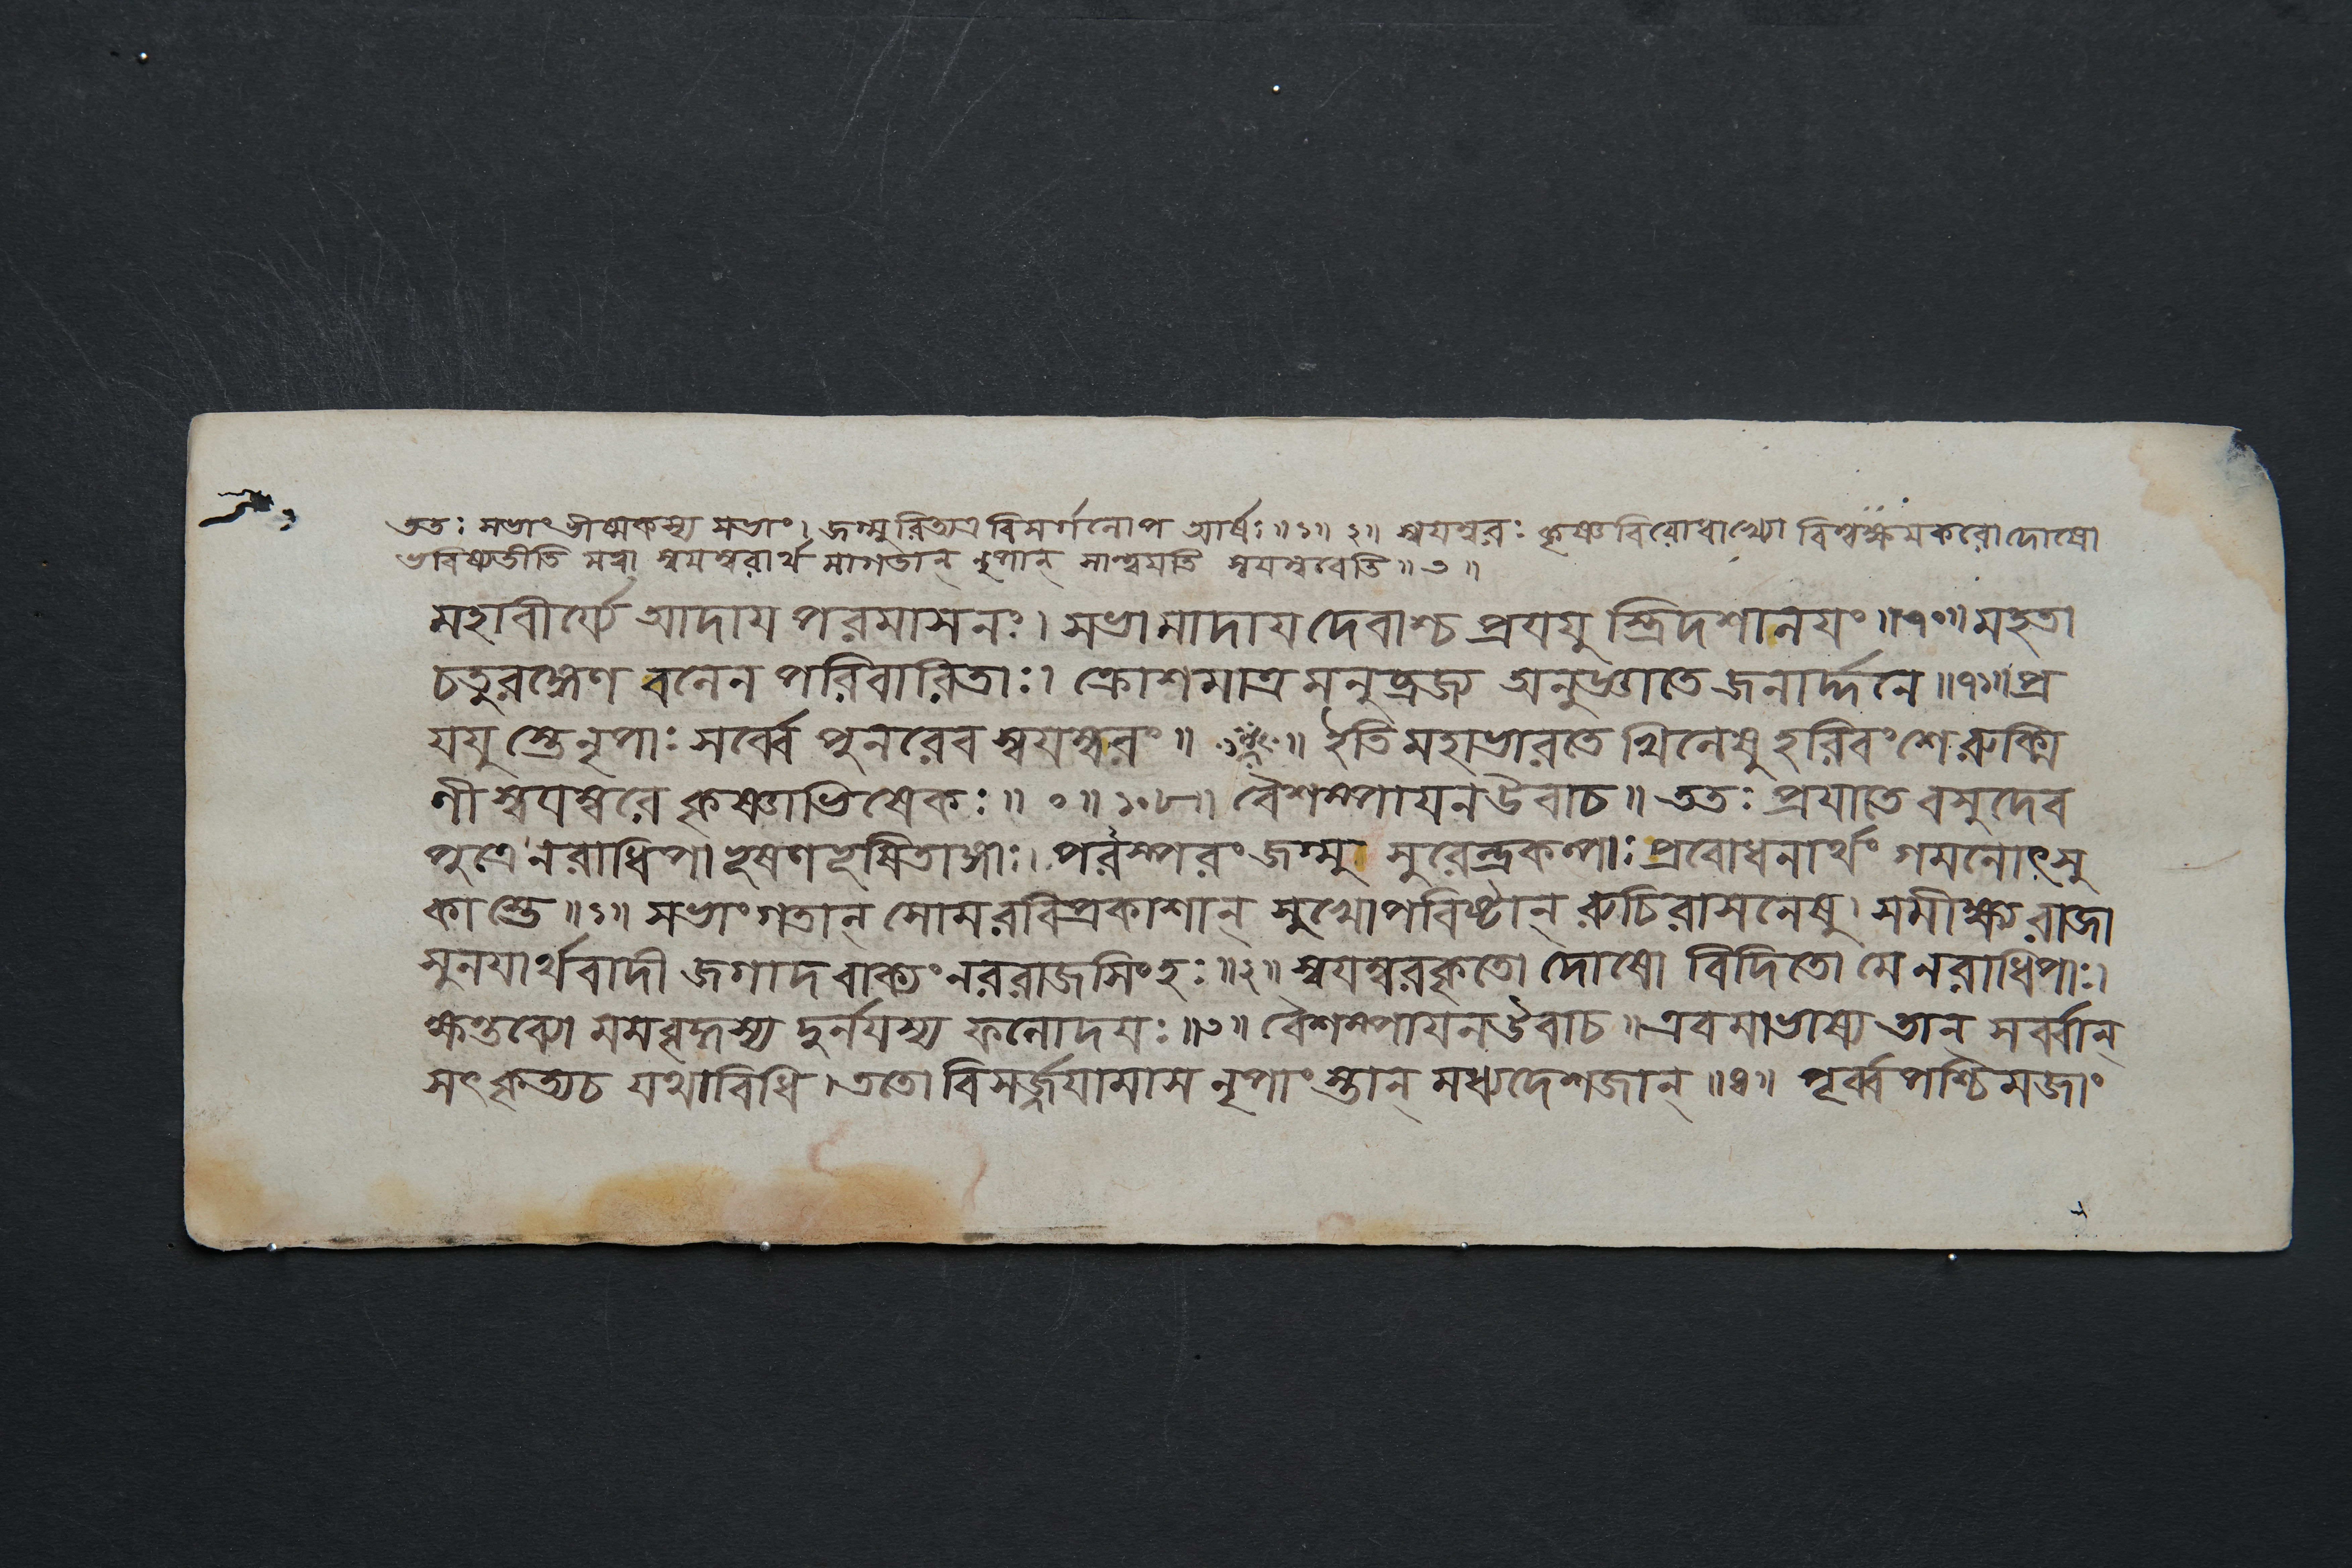 ততঃ সভাং ভীষ্মকস্য সভাং। জগ্মুরিত্যত্র বিসর্গলোপ আর্ষঃ॥১॥২॥ স্বয়ম্বরঃ কৃষ্ণবিরোধাখ্যো বিশ্বক্ষয়করো দোষো
ভবিষ্যতীতি মত্বা স্বয়ম্বরার্থমাগতান্ নৃপান্ সান্ত্বয়তি স্বয়ম্বরেতি॥৩॥
মহাবীর্য্যে আদায় পরমাসনং। সভামাদায় দেবাশ্চ প্রযযুস্ত্রিদশালয়ং॥৭০॥ মহতা
চতুরঙ্গেণ বলেন পরিবারিতাঃ। ক্রোশমাত্রমনুব্রজ্য অনুজ্ঞাতে জনার্দ্দনে॥৭১॥ প্র
যযুস্তে নৃপাঃ সর্ব্বে পুনরেব স্বয়ম্বরং॥ ॥ ইতি মহাভারতে খিলেষু হরিবংশে রুক্মি
ণীস্বয়ম্বরে কৃষ্ণাভিষেকঃ॥ ০॥ ১০৮॥ বৈশম্পায়ন উবাচ॥ ততঃ প্রযাতে বসুদেব
পুত্রে নরাধিপা ভূষণভূষিতাঙ্গাঃ। পরস্পরং জগ্মু সুরেন্দ্রকল্পাঃ প্রবোধনার্থং গমনোৎসু
কাস্তে॥১॥ সভাং গতান্ সোমরবিপ্রকাশান্ সুখোপবিষ্টান্ রুচিরাসনেষু। সমীক্ষ্য রাজা
সুনয়ার্থবাদী জগাদ বাক্যং নররাজসিংহঃ॥২॥ স্বয়ম্বরকৃতো দোষো বিদিতো মে নরাধিপাঃ।
ক্ষন্তব্যো মম বৃদ্ধস্য দুর্নয়স্য ফলোদয়ঃ॥৩॥ বৈশম্পায়ন উবাচ॥ এবমাভাষ্য তান্ সর্ব্বান্
সৎকৃত্য চ যথাবিধি। ততো বিসর্জ্জয়ামাস নৃপাংস্তান্ মধ্যদেশজান্॥৪॥ পূর্ব্বপশ্চিমজাং